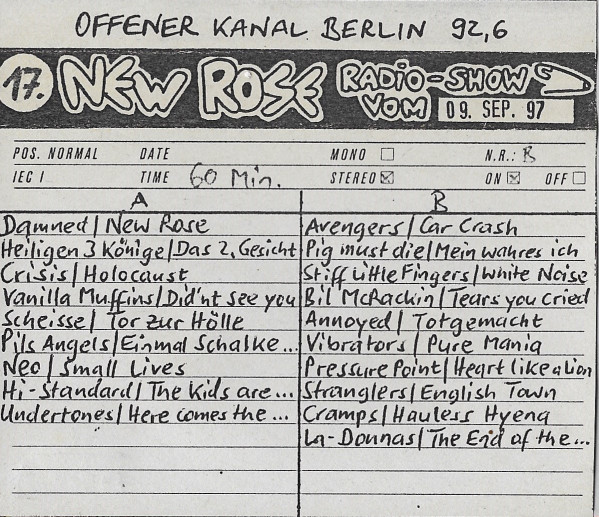 OFFENER KANAL BERLIN 92,6
17. NEW ROSE RADIO-SHOW VOM 09. SEP. 97
POS. NORMAL DATE MONO N.R.: B
IEC I TIME 60 Min. STEREO ON OFF
A
Damned / New Rose
Heiligen 3 Könige / Das 2. Gesicht
Crisis / Holocaust
Vanilla Muffins / Did'nt see you
Scheisse / Tor zur Hölle
Pils Angels / Einmal Schalke...
Neo / Small Lives
Hi-Standard / The Kids are...
Undertones / Here comes the...
B
Avengers / Car Crash
Pig must die / Mein wahres ich
Stiff Little Fingers / White Noise
Bil McRackin / Tears you cried
Annoyed / Totgemacht
Vibrators / Pure Mania
Pressure Point / Heart like a lion
Stranglers / English Town
Cramps / Hauless Hyena
La-Donnas / The End of the...